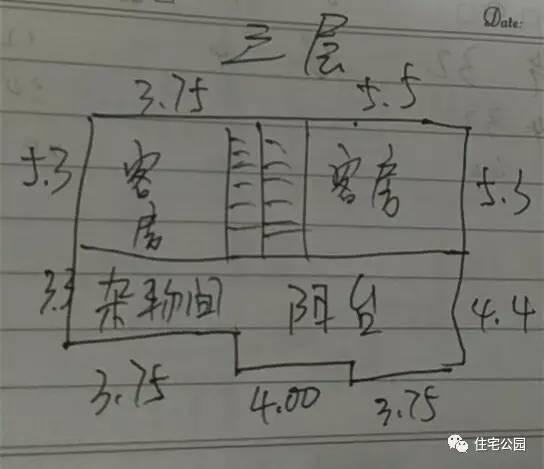 Date:
三层
3.75
5.5
5.3
客房
客房
5.3
3.3
杂物间
阳台
4.4
3.75
4.00
3.75
住宅公园